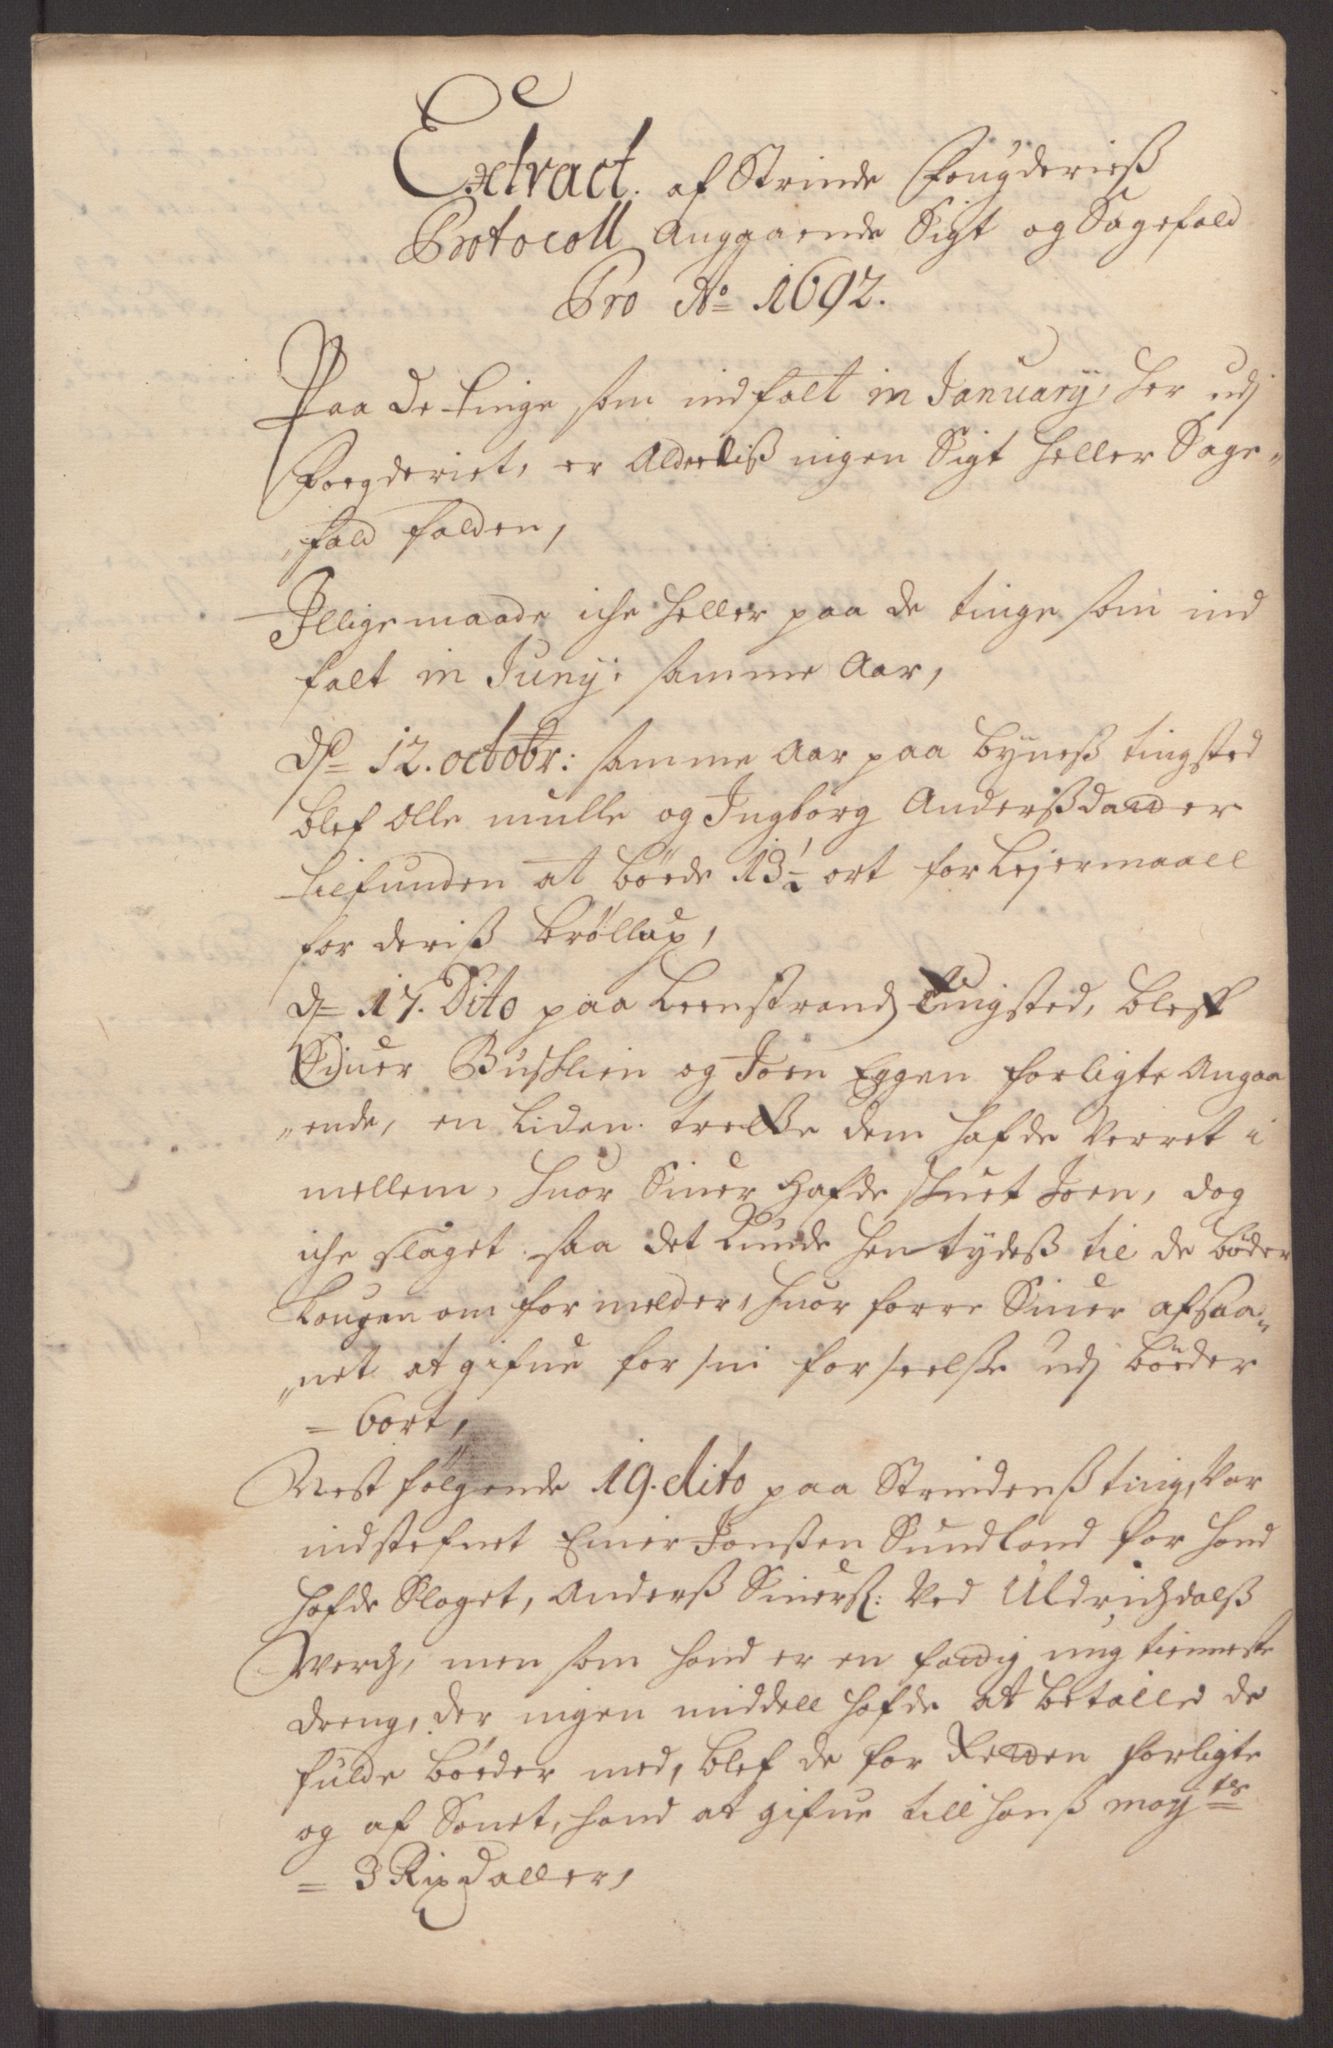 Extract. af Strinde Fougderieß
Protocoll Anggaende Sigt og Sagefald
Pro Ao 1692.
Paa de tinge som indfalt in January, her udj
Foegderiet, er Aldeeliß ingen Sigt heller Sage„
„fald falden,
I lige maade iche heller paa de tinge som ind
falt in Junij: samme Aar,
Dn 12. octobr: samme Aar paa Byneß tingsted
blef Olle mulle og Ingborg Anderßdaatter
tilfunden at böede 13½ ort for Lejermaall
for deriß bröllup,
d 17. Dito paa Leenstrandz tingsted, bleff
Siuer Buschlien og Joen Eggen forligte Angaa
„ende, en Liden trette dem hafde Verret i
mellem, huor Siuer hafde schuet Joen, dog
iche slaget saa det kunde hentydeß til de böder
Lougen om formelder, huor forre Siuer afsaa„
„net at gifue for sin forseelse udj böeder
= 6 ort,
Nest følgende 19. dito paa Strindenß ting, Var
indstefnet Einer Jonßen Sundland for hand
hafde Slaget, Anderß Siuerß: Ved Uldrichdalß
Werch, men som hand er en fattig ung tienneste
dreng, der ingen middell hafde at betalle de
fulde böeder med, blef de for Retten forligte
og af Sonet, hand at gifue till hanß mayts
= 3 Rixdaller,